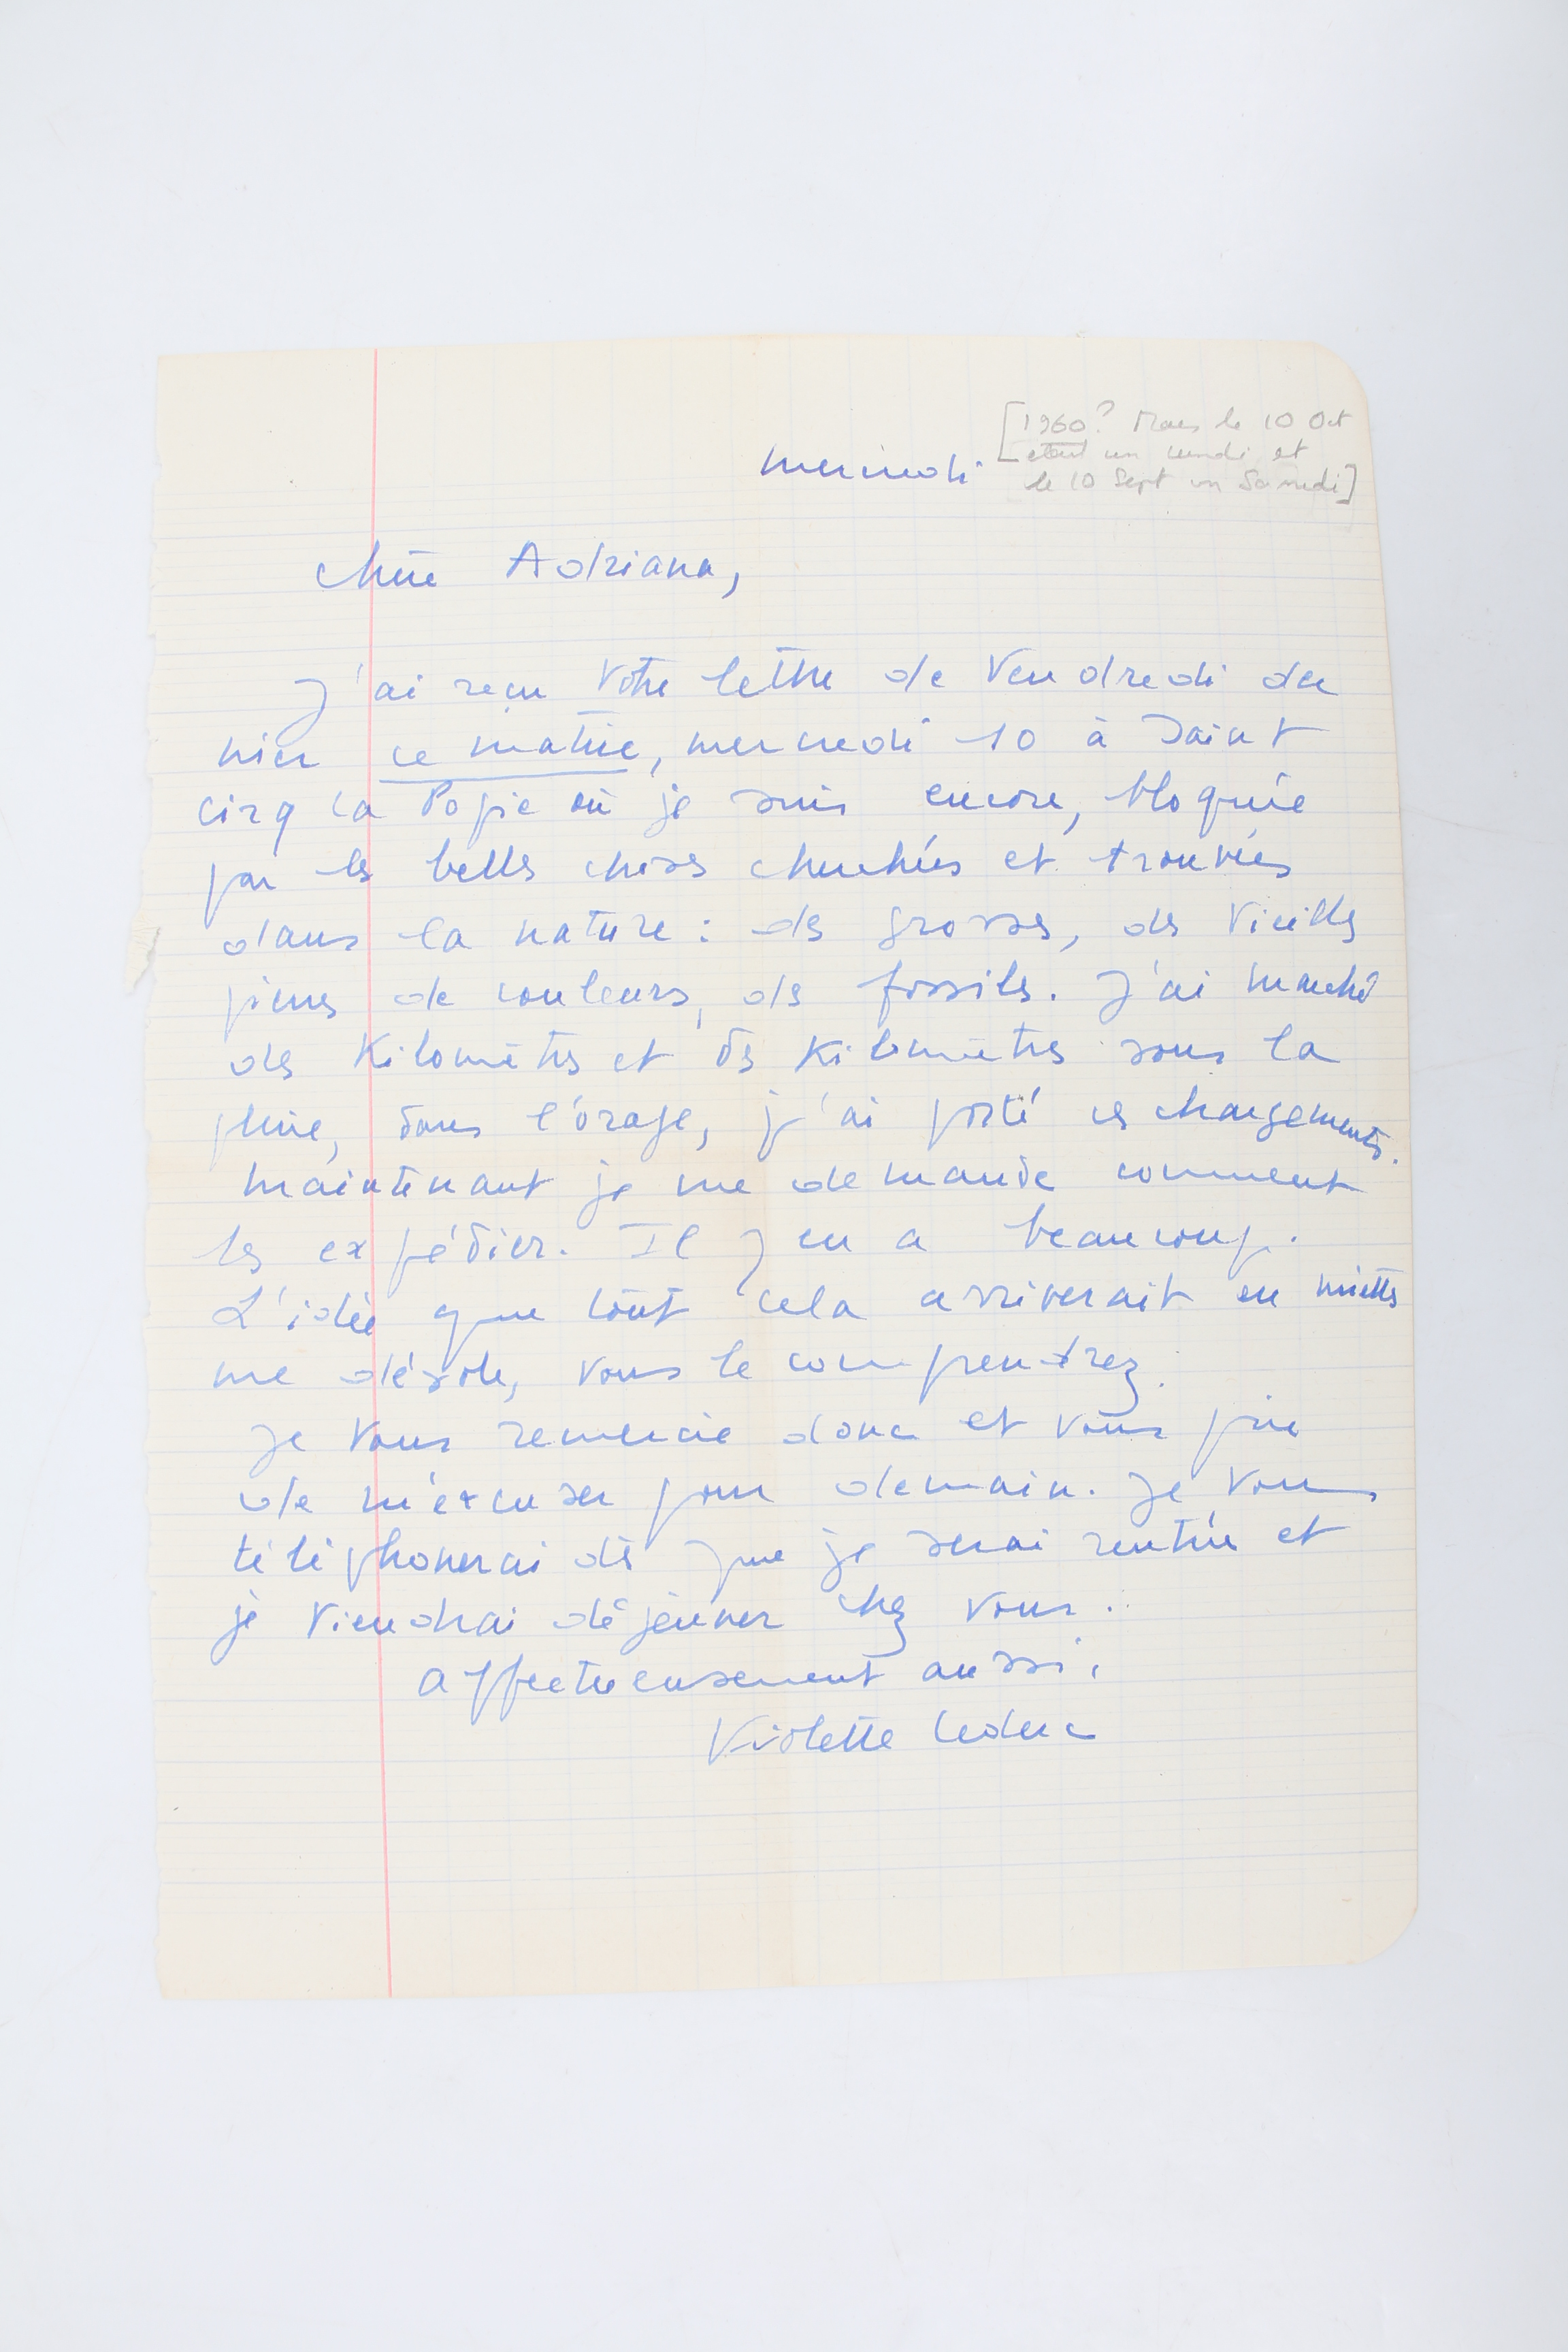 [1960? Mais le 10 Oct
mercredi
était un lundi et
le 10 Sept un Samedi]
chère Adriana,
J'ai reçu votre lettre de Vendredi der
nier ce matin, mercredi 10 à Saint
Cirq La Popie où je suis encore, bloquée
par les belles choses cherchées et trouvées
dans la nature : des grosses, des vieilles
pierres de couleurs, des fossiles. J'ai marché
des kilomètres et des kilomètres sous la
pluie, dans l'orage, j'ai porté ces chargements.
maintenant je me demande comment
les expédier. Il y en a beaucoup.
L'idée que tout cela arriverait en miettes
me désole, vous le comprendrez.
Je vous remercie donc et vous prie
de m'excuser pour demain. Je vous
téléphonerai dès que je serai rentrée et
je viendrai déjeuner chez vous.
affectueusement aussi,
Violette Leduc